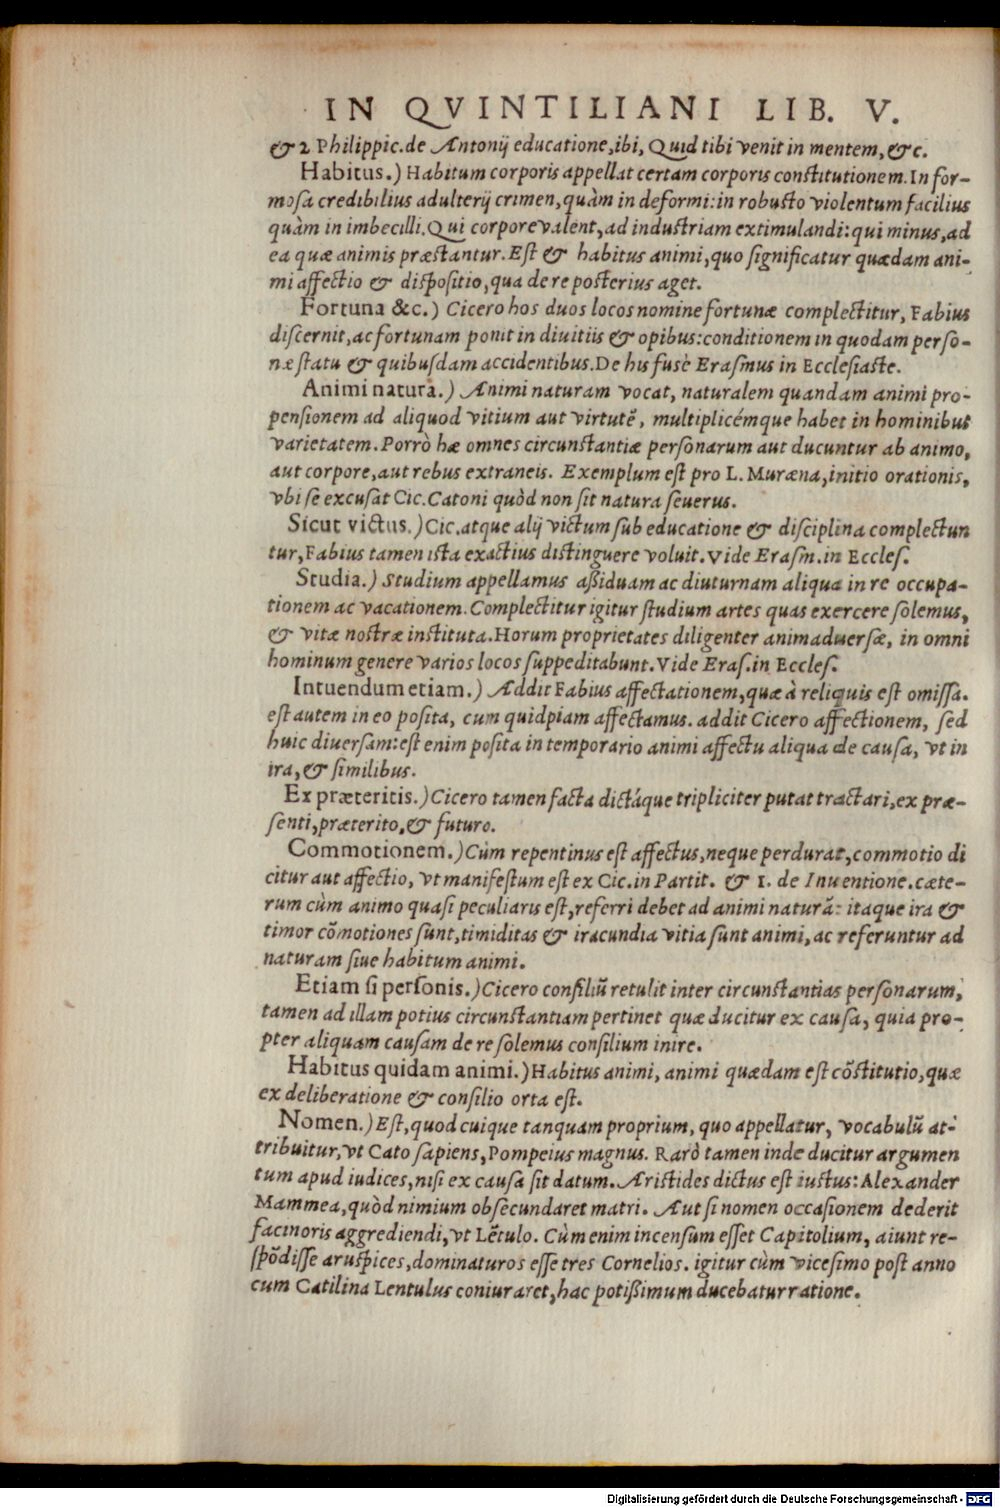 IN QVINTILIANI LIB. V.
& 2 Philippic. de Antonij educatione, ibi, Quid tibi venit in mentem, &c.
Habitus.) Habitum corporis appellat certam corporis constitutionem. In for-
mosa credibilius adulterij crimen, quàm in deformi: in robusto violentum facilius
quàm in imbecilli. Qui corpore valent, ad industriam extimulandi: qui minus, ad
ea quæ animis præstantur. Est & habitus animi, quo significatur quædam ani-
mi affectio & dispositio, qua de re posterius aget.
Fortuna &c.) Cicero hos duos locos nomine fortunæ complectitur, Fabius
discernit, ac fortunam ponit in diuitiis & opibus: conditionem in quodam perso-
næ statu & quibusdam accidentibus. De his fusè Erasmus in Ecclesiaste.
Animi natura.) Animi naturam vocat, naturalem quandam animi pro-
pensionem ad aliquod vitium aut virtutē, multiplicémque habet in hominibus
varietatem. Porrò hæ omnes circunstantiæ personarum aut ducuntur ab animo,
aut corpore, aut rebus extraneis. Exemplum est pro L. Muræna, initio orationis,
vbi se excusat Cic. Catoni quòd non sit natura seuerus.
Sicut victus.) Cic. atque alij victum sub educatione & disciplina complectun
tur, Fabius tamen ista exactius distinguere voluit. Vide Erasm. in Eccles.
Studia.) Studium appellamus aßiduam ac diuturnam aliqua in re occupa-
tionem ac vacationem. Complectitur igitur studium artes quas exercere solemus,
& vitæ nostræ instituta. Horum proprietates diligenter animaduersæ, in omni
hominum genere varios locos suppeditabunt. Vide Eras. in Eccles.
Intuendum etiam.) Addit Fabius affectationem, quæ à reliquis est omissa.
est autem in eo posita, cum quidpiam affectamus. addit Cicero affectionem, sed
huic diuersam: est enim posita in temporario animi affectu aliqua de causa, vt in
ira, & similibus.
Ex præteritis.) Cicero tamen facta dictáque tripliciter putat tractari, ex præ-
senti, præterito, & futuro.
Commotionem.) Cùm repentinus est affectus, neque perdurat, commotio di
citur aut affectio, vt manifestum est ex Cic. in Partit. & 1. de Inuentione. cæte-
rum cùm animo quasi peculiaris est, referri debet ad animi naturā: itaque ira &
timor cōmotiones sunt, timiditas & iracundia vitia sunt animi, ac referuntur ad
naturam siue habitum animi.
Etiam si personis.) Cicero consiliū retulit inter circunstantias personarum,
tamen ad illam potius circunstantiam pertinet quæ ducitur ex causa, quia pro-
pter aliquam causam de re solemus consilium inire.
Habitus quidam animi.) Habitus animi, animi quædam est cōstitutio, quæ
ex deliberatione & consilio orta est.
Nomen.) Est, quod cuique tanquam proprium, quo appellatur, vocabulū at-
tribuitur, vt Cato sapiens, Pompeius magnus. Rarò tamen inde ducitur argumen
tum apud iudices, nisi ex causa sit datum. Aristides dictus est iustus: Alexander
Mammea, quòd nimium obsecundaret matri. Aut si nomen occasionem dederit
facinoris aggrediendi, vt Lētulo. Cùm enim incensum esset Capitolium, aiunt re-
spōdisse aruspices, dominaturos esse tres Cornelios. igitur cùm vicesimo post anno
cum Catilina Lentulus coniuraret, hac potißimum ducebatur ratione.
Digitalisierung gefördert durch die Deutsche Forschungsgemeinschaft - DFG